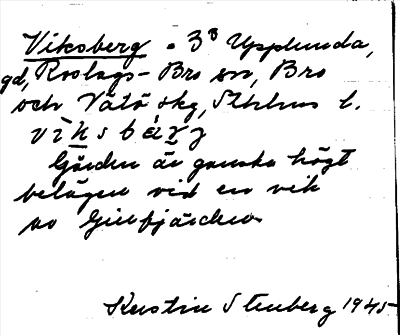 Viksberg . 3⁸ Upplunda,
gd, Roslags-Bro sn, Bro
och Vätö skg, Sthlms l.
Gården är ganska högt
belägen vid en vik
av Gillfjärden.
Kerstin Stenberg 1945